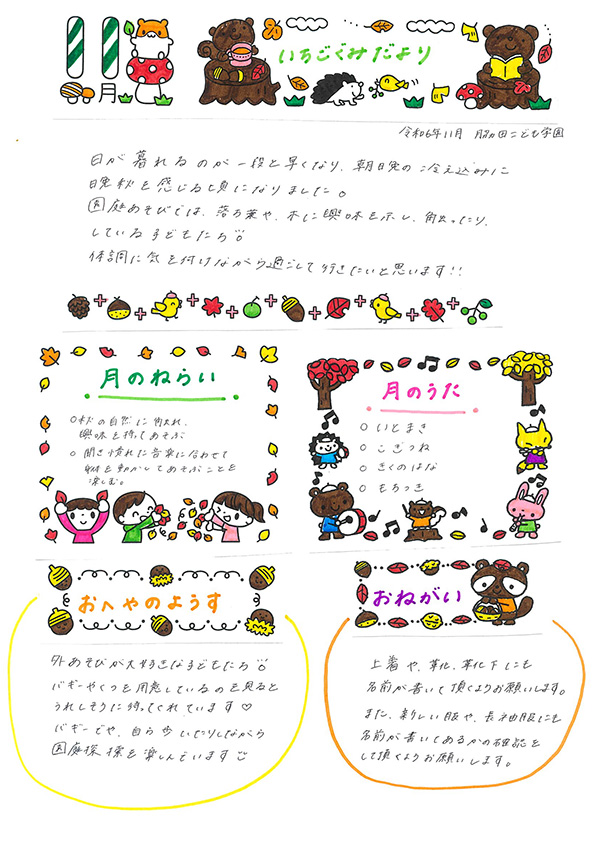 11月
いちごぐみだより
令和6年11月 脇田こども学園
日が暮れるのが一段と早くなり、朝晩の冷え込みに
晩秋を感じる頃になりました。
園庭あそびでは、落ち葉や、木に興味を示し、触ったり、
している子どもたち
体調に気を付けながら過ごして行きたいと思います!!
月のねらい
○秋の自然に触れ、
興味を持ってあそぶ
○聞き慣れた音楽に合わせて
身体を動かしてあそぶことを
楽しむ。
月のうた
○いとまき
○こぎつね
○きくのはな
○もちつき
おへやのようす
外あそびが大好きな子どもたち
バギーやくつを用意しているのを見ると
うれしそうに待ってくれています♡
バギーでや、自ら歩いたりしながら
園庭探索を楽しんでいます
おねがい
上着や、靴、靴下にも
名前が書いて頂くようお願いします。
また、新しい服や、長袖服にも
名前が書いてあるかの確認を
して頂くようお願いします。